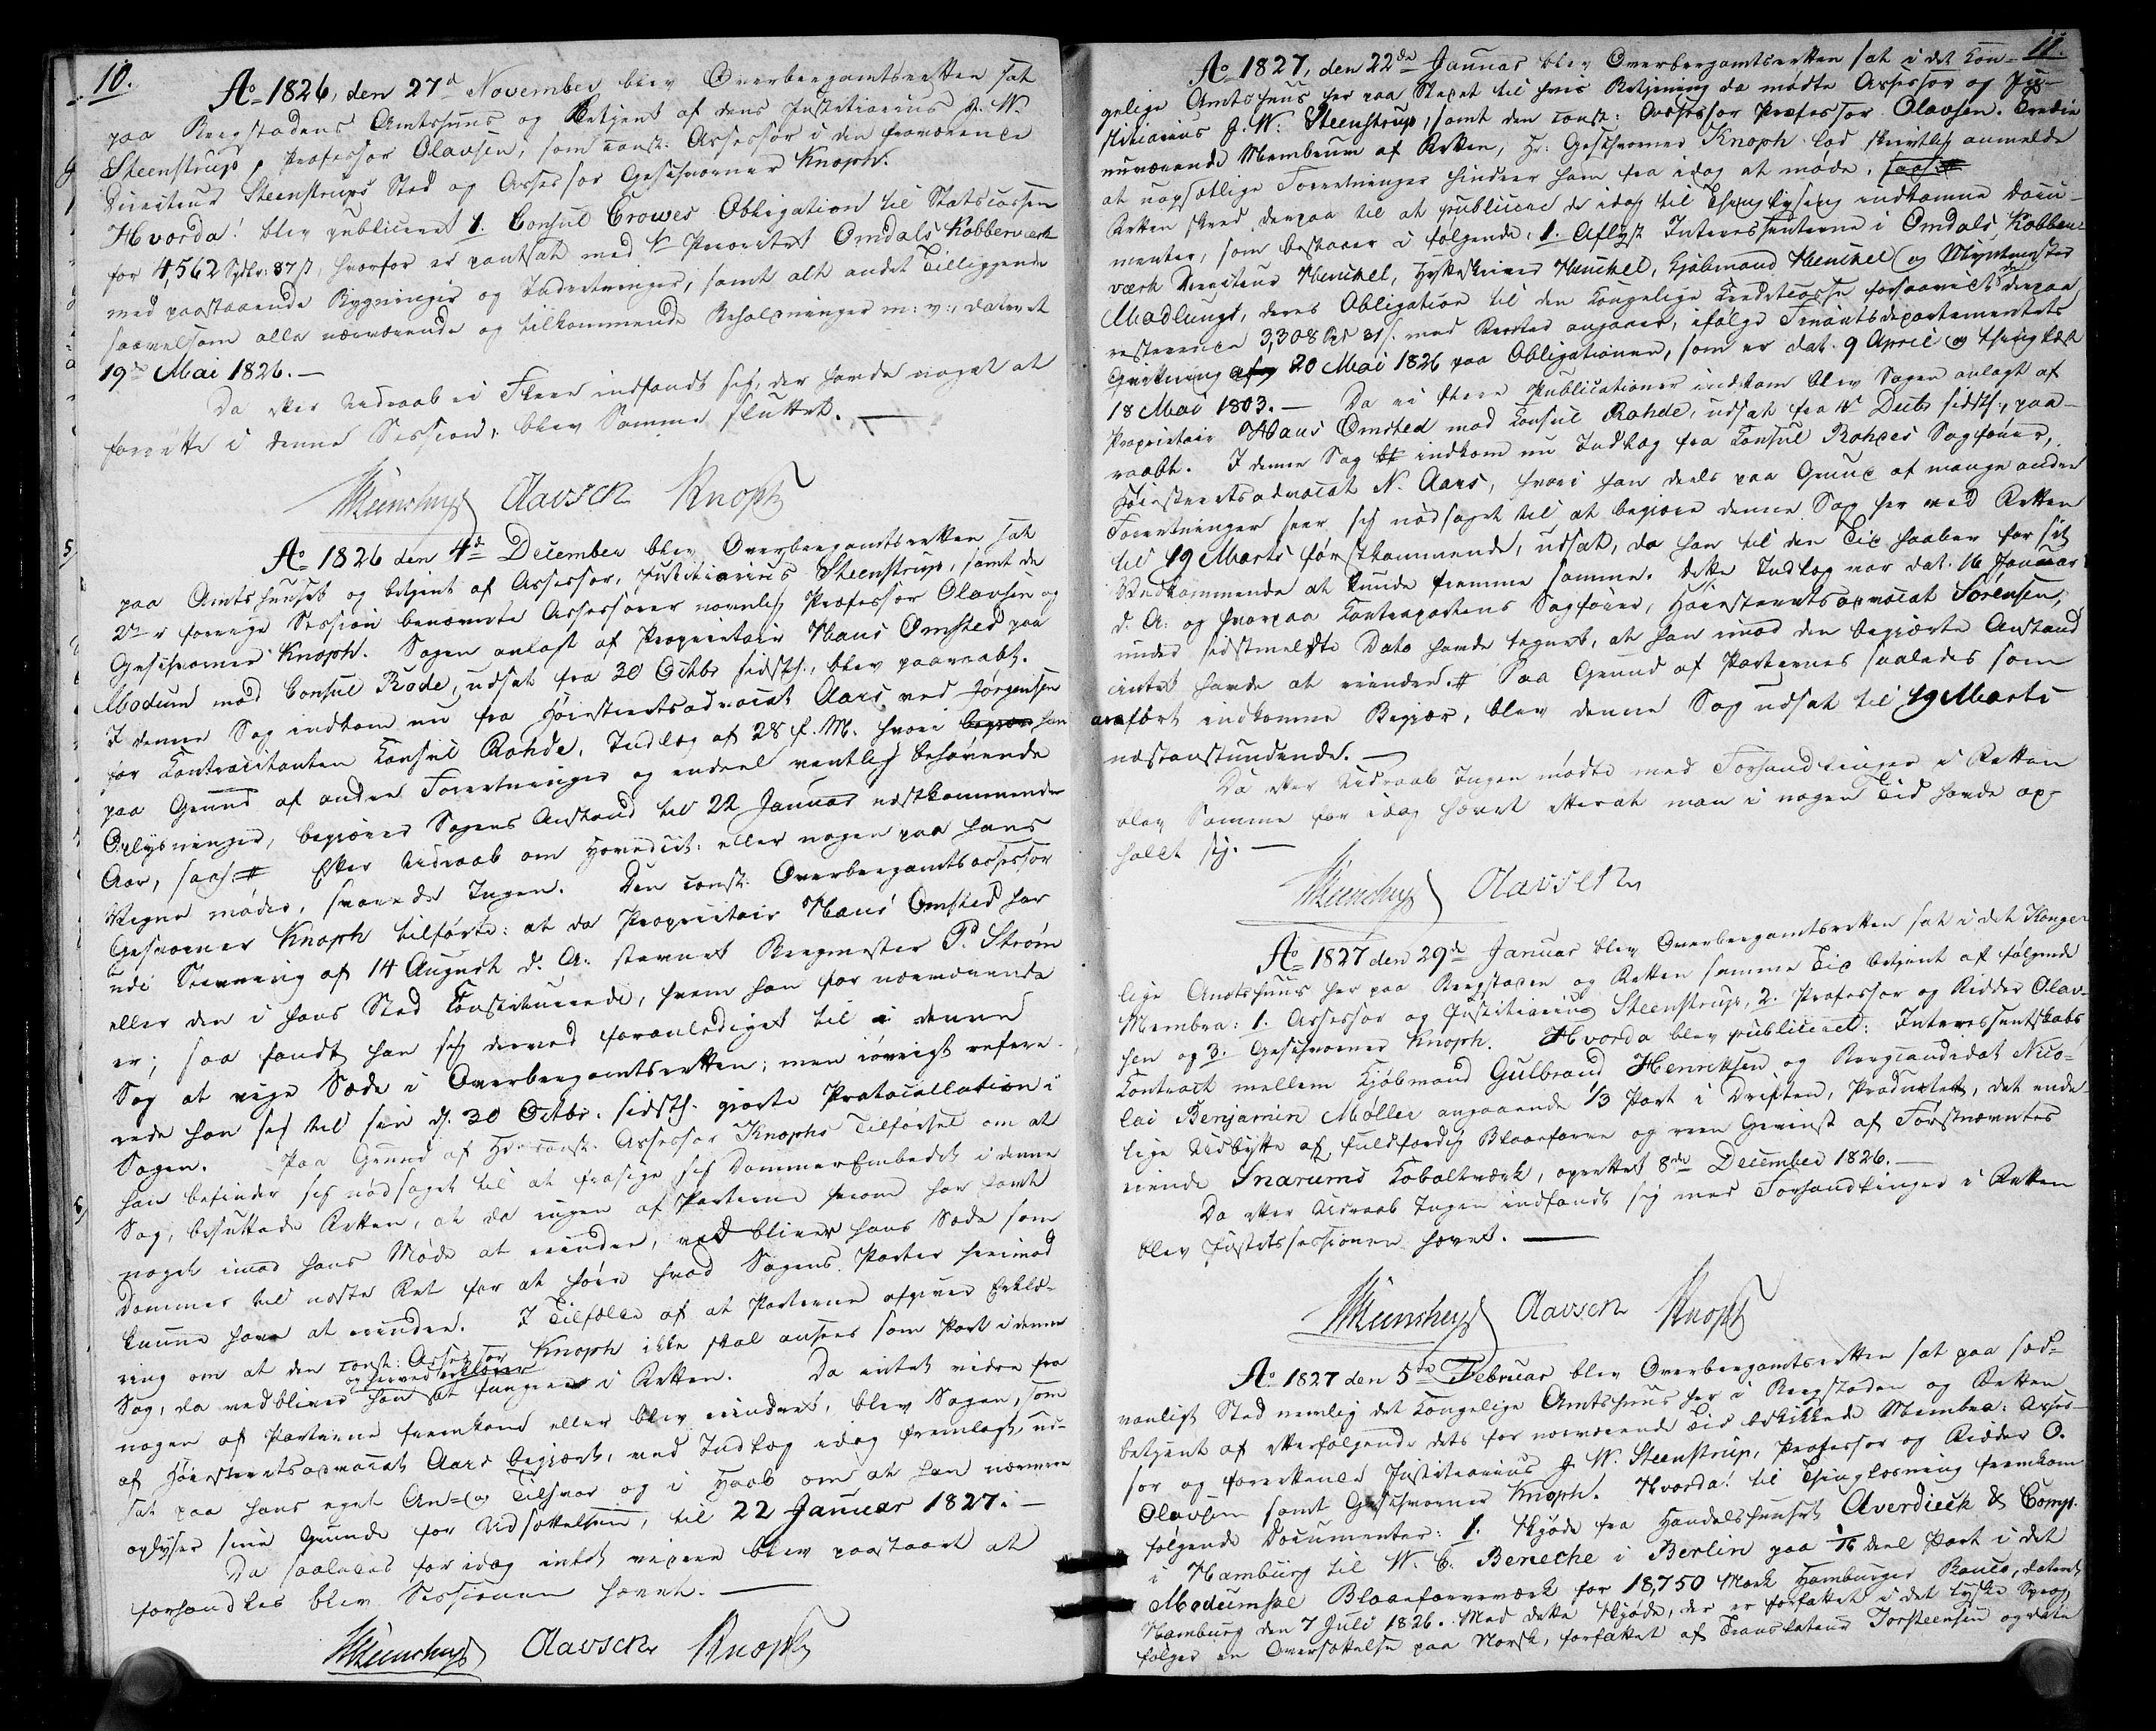 10.
Ao 1826, den 27de November blev Overbergamtsretten sat
paa Bergstadens Amtshuus og betjent af dens Justitiarius J. W.
Steenstrup, Professor Olavsen, som const. Assessor i den fraværende
Directeur Steenstrups Sted og Assessor Geschworner Knoph.
Hvorda! blev publiceret 1. Consul Crowes Obligation til Statscassen
for 4,562 Spdlr. 87 s, hvorfor er pantsat med 1ste Prioritet Omdals Kobberværk
med paastaaende Bygninger og Indretninger, samt alt andet Tilliggende
saavelsom alle nærværende og tilkommende Beholdninger m: v:, dateret
19de Mai 1826. —
Da efter Udraab ei Fleere indfandt sig, der havde noget at
forrette i denne Session, blev Samme sluttet. —
Steenstrup Olavsen Knoph
Ao 1826 den 4de December blev Overbergamtsretten sat
paa Amtshuuset og betjent af Assessor, Justitiarius Steenstrup, samt de
2de i forrige Session benævnte Assessorer navnlig Professor Olavsen og
Geschworner Knoph. Sagen anlagt af Proprietair Hans Omsted paa
Modum mod Consul Rode, udsat fra 30 Octbr sidstl., blev paaraabt.
I denne Sag indkom nu fra Høiesteretsadvocat Aars ved Jørgensen
for Contracitanten Consul Rohde, Indlæg af 28 f. M. hvori han
paa Grund af andre Forretninger og endeel ventelig behøvende
Oplysninger, begjærer Sagens Anstand til 22 Januar næstkommende
Aar, saal. # Efter Udraab om Hovedcit: eller nogen paa hans
Vegne møder, svarede Ingen. Den const. Overbergamtsassessor
Geschworner Knoph tilførte: at da Proprietair Hans Omsted har
udi Stævning af 14 August d. A. stævnet Bergmester P. Strøm
eller den i hans Sted Constituerede, hvem han for nærværende
er; saa fandt han sig derved foranlediget til i denne
Sag at vige Sæde i Overbergamtsretten; men iøvrigt refere-
rede han sig til sin d. 30 Octbr. sidstl. gjorte Protocollation i
Sagen. Paa Grund af Hr const. Assessor Knophs Tilførsel om at
han befinder sig nødsaget til at frasige sig DommerEmbedet i denne
Sag, besluttede Retten, at da ingen af Parterne hverom har havt
noget imod hans Møde at erindre, vedbliver hans Sæde som
Dommer til næste Ret for at høre hvad Sagens Parter herimod
kunne have at erindre. I Tilfælde af at Parterne afgiver Erklæ-
ring om at den const: Assessor Knoph ikke skal ansees som Part i denne
og herved erklærer
Sag, da vedbliver han at fungere i Retten. Da intet videre fra
nogen af Parterne fremkom eller blev erindret, blev Sagen, som
af Høiesteretsadvocat Aars begjært, ved Indlæg idag fremlagt, ud-
sat paa hans eget An- og Tilsvar og i Haab om at han nærmere
oplyser sine Grunde for Udsættelsen, til 22 Januar 1827. —
Da saaledes for idag intet videre blev paastaaet at
forhandles blev Sessionen hævet. —
Steenstrup Olavsen Knoph
11.
Ao 1827, den 22de Januar blev Overbergamtsretten sat i det Kon-
gelige Amtshuus her paa Stedet til hvis Betjening da mødte Assessor og Ju-
stitiarius J. W. Steenstrup, samt den const: Assessor Professor Olavsen. Tredie
nuværende Membrum af Retten, Hr: Geschworner Knoph lod skriftlig anmelde
at uopsættlige Forretninger hindrer ham fra idag at møde.
Retten skred derpaa til at publicere de idag til Thinglysning indkomne Docu-
menter, som bestaaer i følgende: 1. Aflyst Interessenterne i Omdals Kobber-
værk Directeur Henckel, Hytteskriver Henckel, Kjøbmand Henckel og Myntmester
Madlungs, deres Obligation til den Kongelige Creditcasse forsaavidt den paa
resterende 3,308 Rd 31 s. med Renter angaaer, ifølge Finantsdepartementets
Qvittering 20 Mai 1826 paa Obligationen, som er dat. 9 April og thinglæst
18 Mai 1803. — Da ei flere Publicationer indkom blev Sagen anlagt af
Proprietair Hans Omsted mod Consul Rohde, udsat fra 4de Decbr sidstl:, paa-
raabt. I denne Sag indkom nu Indlæg fra Consul Rohdes Sagfører,
Høiesteretsadvocat N. Aars, hvori han deels paa Grund af mange andre
Forretninger seer sig nødsaget til at begjære denne Sag her ved Retten
til 19 Marts førstkommende, udsat, da han til den Tid haaber for sit
Vedkommende at kunde fremme samme. Dette Indlæg var dat. 16 Januar
d. A. og hvorpaa Contrapartens Sagfører, Høiesteretsadvocat Sørensen,
under sidstmeldte Dato havde tegnet, at han imod den begjærte Anstand
intet havde at erindre. # Paa Grund af Parternes saaledes som
anført indkomne Begjær, blev denne Sag udsat til 19 Marts
næstanstundende. —
Da efter Udraab Ingen mødte med Forhandlinger i Retten
blev Samme for idag hævet efterat man i nogen Tid havde op-
holdt sig. —
Steenstrup Olavsen
Ao 1827 den 29de Januar blev Overbergamtsretten sat i det Konge-
lige Amtshuus her paa Bergstaden og Retten samme Tid betjent af følgende
Membra: 1. Assessor og Justitiarius Steenstrup, 2. Professor og Ridder Olav-
sen og 3. Geschworner Knoph. Hvorda blev publiceret: Interessentskabs
Contract mellem Kjøbmand Gulbrand Henriksen og Bergcandidat Nico-
lai Benjamin Møller angaaende 1/3 Part i Driften, Productet, det ende-
lige Udbytte af fuldfærdig Blaafarve og reen Gevinst af Førstnævntes
eiende Snarums Koboltværk, oprettet 8de December 1826. —
Da efter Udraab Ingen indfandt sig med Forhandlinger i Retten
blev Justitssessionen hævet. —
Steenstrup Olavsen Knoph
Ao 1827 den 5te Februar blev Overbergamtsretten sat paa sæd-
vanligt Sted nemlig det Kongelige Amtshuus her i Bergstaden og Retten
betjent af efterfølgende dets for nærværende Tid beskikkede Membra: Asses-
sor og forrettende Justitiarius J. W. Steenstrup, Professor og Ridder O.
Olavsen samt Geschworner Knoph. Hvorda! til Thinglæsning fremkom
følgende Documenter: 1. Skjøde fra Handelshuuset Averdieck & Comp.
i Hamburg til W. C. Benecke i Berlin paa 1/16 deel Part i det
Modumske Blaafarveværk for 18,750 Mark Hamburger Banco, dateret
Hamburg den 7 Juli 1826. Med dette Skjøde, der er forfattet i det tydske Sprog,
følger en Oversættelse paa Norsk, forfattet af Translateur Torsteensen og date